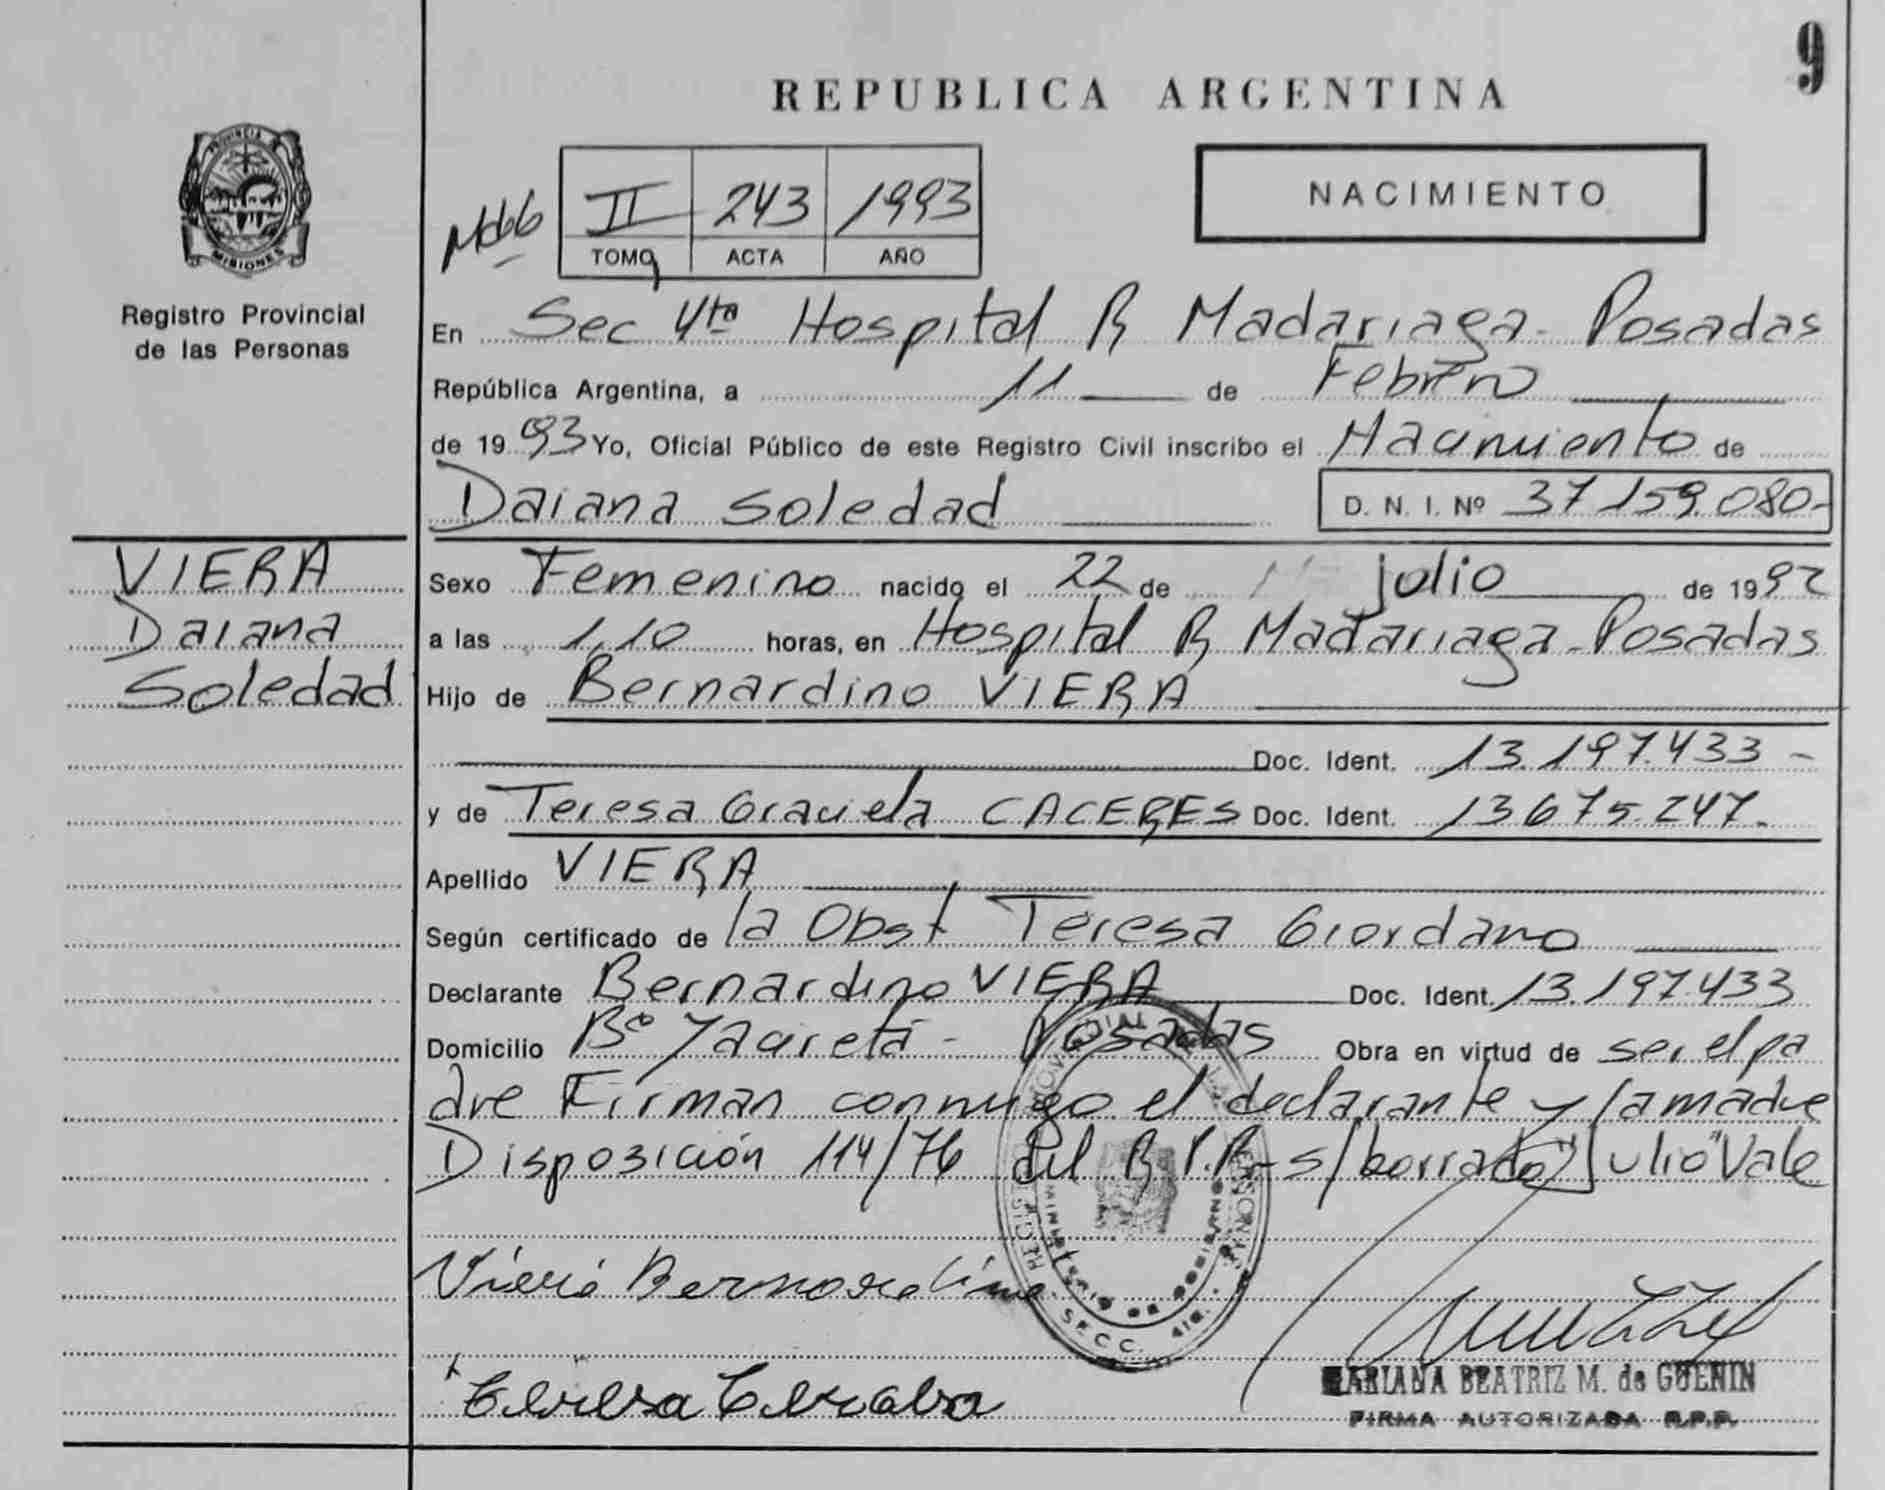 9
REPUBLICA ARGENTINA
PROVINCIA DE
MISIONES
Registro Provincial
de las Personas
II 243 1993
TOMO ACTA AÑO
NACIMIENTO
En Sec 4ta Hospital R Madariaga - Posadas
República Argentina, a 11 de Febrero
de 1993 Yo, Oficial Público de este Registro Civil inscribo el Nacimiento de
Daiana Soledad D. N. I. Nº 37 159.080-
VIERA
Daiana
Soledad
Sexo Femenino nacido el 22 de julio de 1992
a las 1,10 horas, en Hospital R Madariaga - Posadas
Hijo de Bernardino VIERA
Doc. Ident. 13.197.433 -
y de Teresa Graciela CACERES Doc. Ident. 13675.247.
Apellido VIERA
Según certificado de la Obst Teresa Giordano
Declarante Bernardino VIERA Doc. Ident. 13.197.433
Domicilio Bº Yaciretá - Posadas Obra en virtud de ser el pa
dre Firman conmigo el declarante y la madre
Disposición 114/76 del R.P.P - s/borrado "Julio" Vale
Viera Bernardino
SECC. 4ta.
MARIANA BEATRIZ M. de GUENIN
FIRMA AUTORIZADA R.P.P.